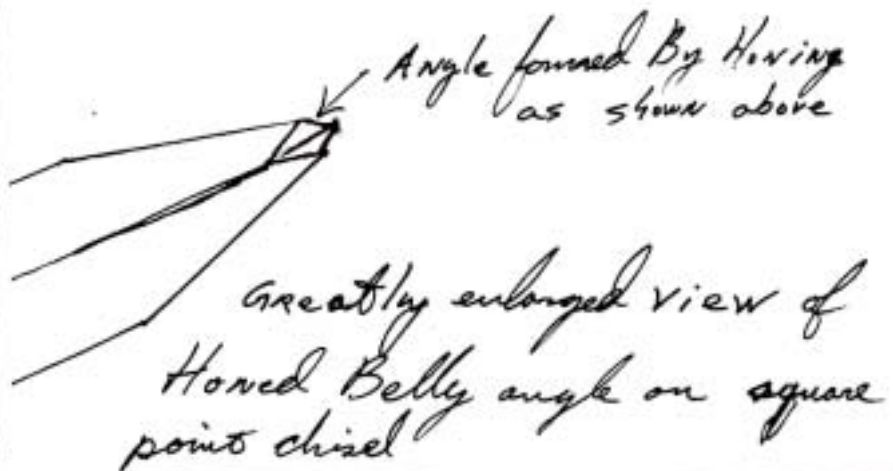 Angle formed By Honing
as shown above
Greatly enlarged view of
Honed Belly angle on square
point chisel